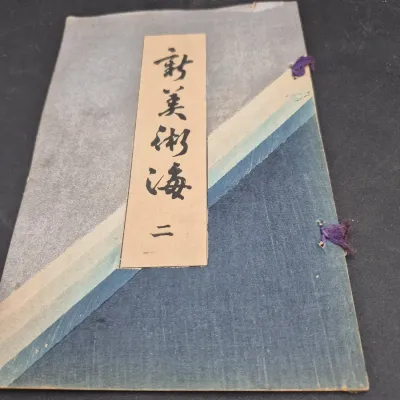 新美術海
二